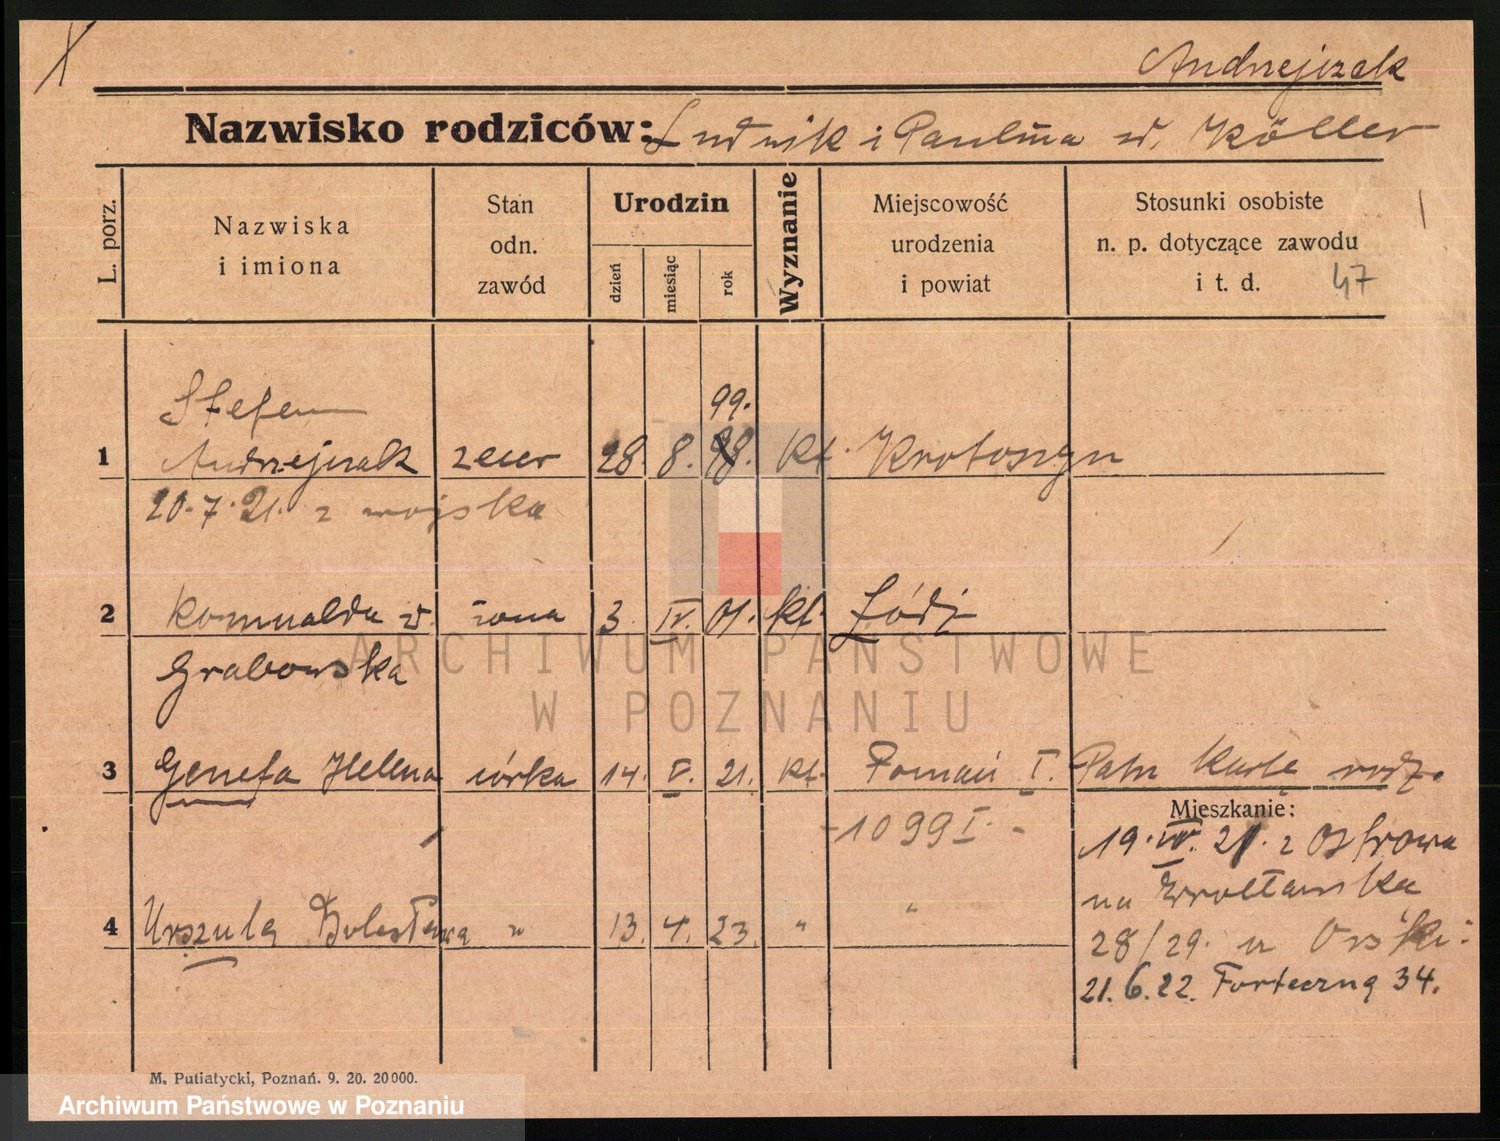 Andrzejczak
Nazwisko rodziców: Ludwik i Paulina z d. Köller
L. porz.
Nazwiska
i imiona
Stan
odn.
zawód
Urodzin
dzień
miesiąc
rok
Wyznanie
Miejscowość
urodzenia
i powiat
Stosunki osobiste
n. p. dotyczące zawodu
i t. d.
47
Stefan
99.
1 Andrzejczak zecer 28. 8. 98. kt. Krotoszyn
20.7.21. z wojska
2 Romualda zd. żona 3. IV. 01. kt. Łódź
Grabowska
3 Genefa Helena córka 14. V. 21. kt. Poznań I. Patrz kartę rodz.
-1099 I.-
Mieszkanie:
19. IV. 21. z Ostrowa
na Wrocławska
28/29. u
4 Urszula Bolesława " 13. 4. 23. " "
21.6.22. Forteczną 34.
ARCHIWUM PAŃSTWOWE
W POZNANIU
M. Putiatycki, Poznań. 9. 20. 20000.
Archiwum Państwowe w Poznaniu